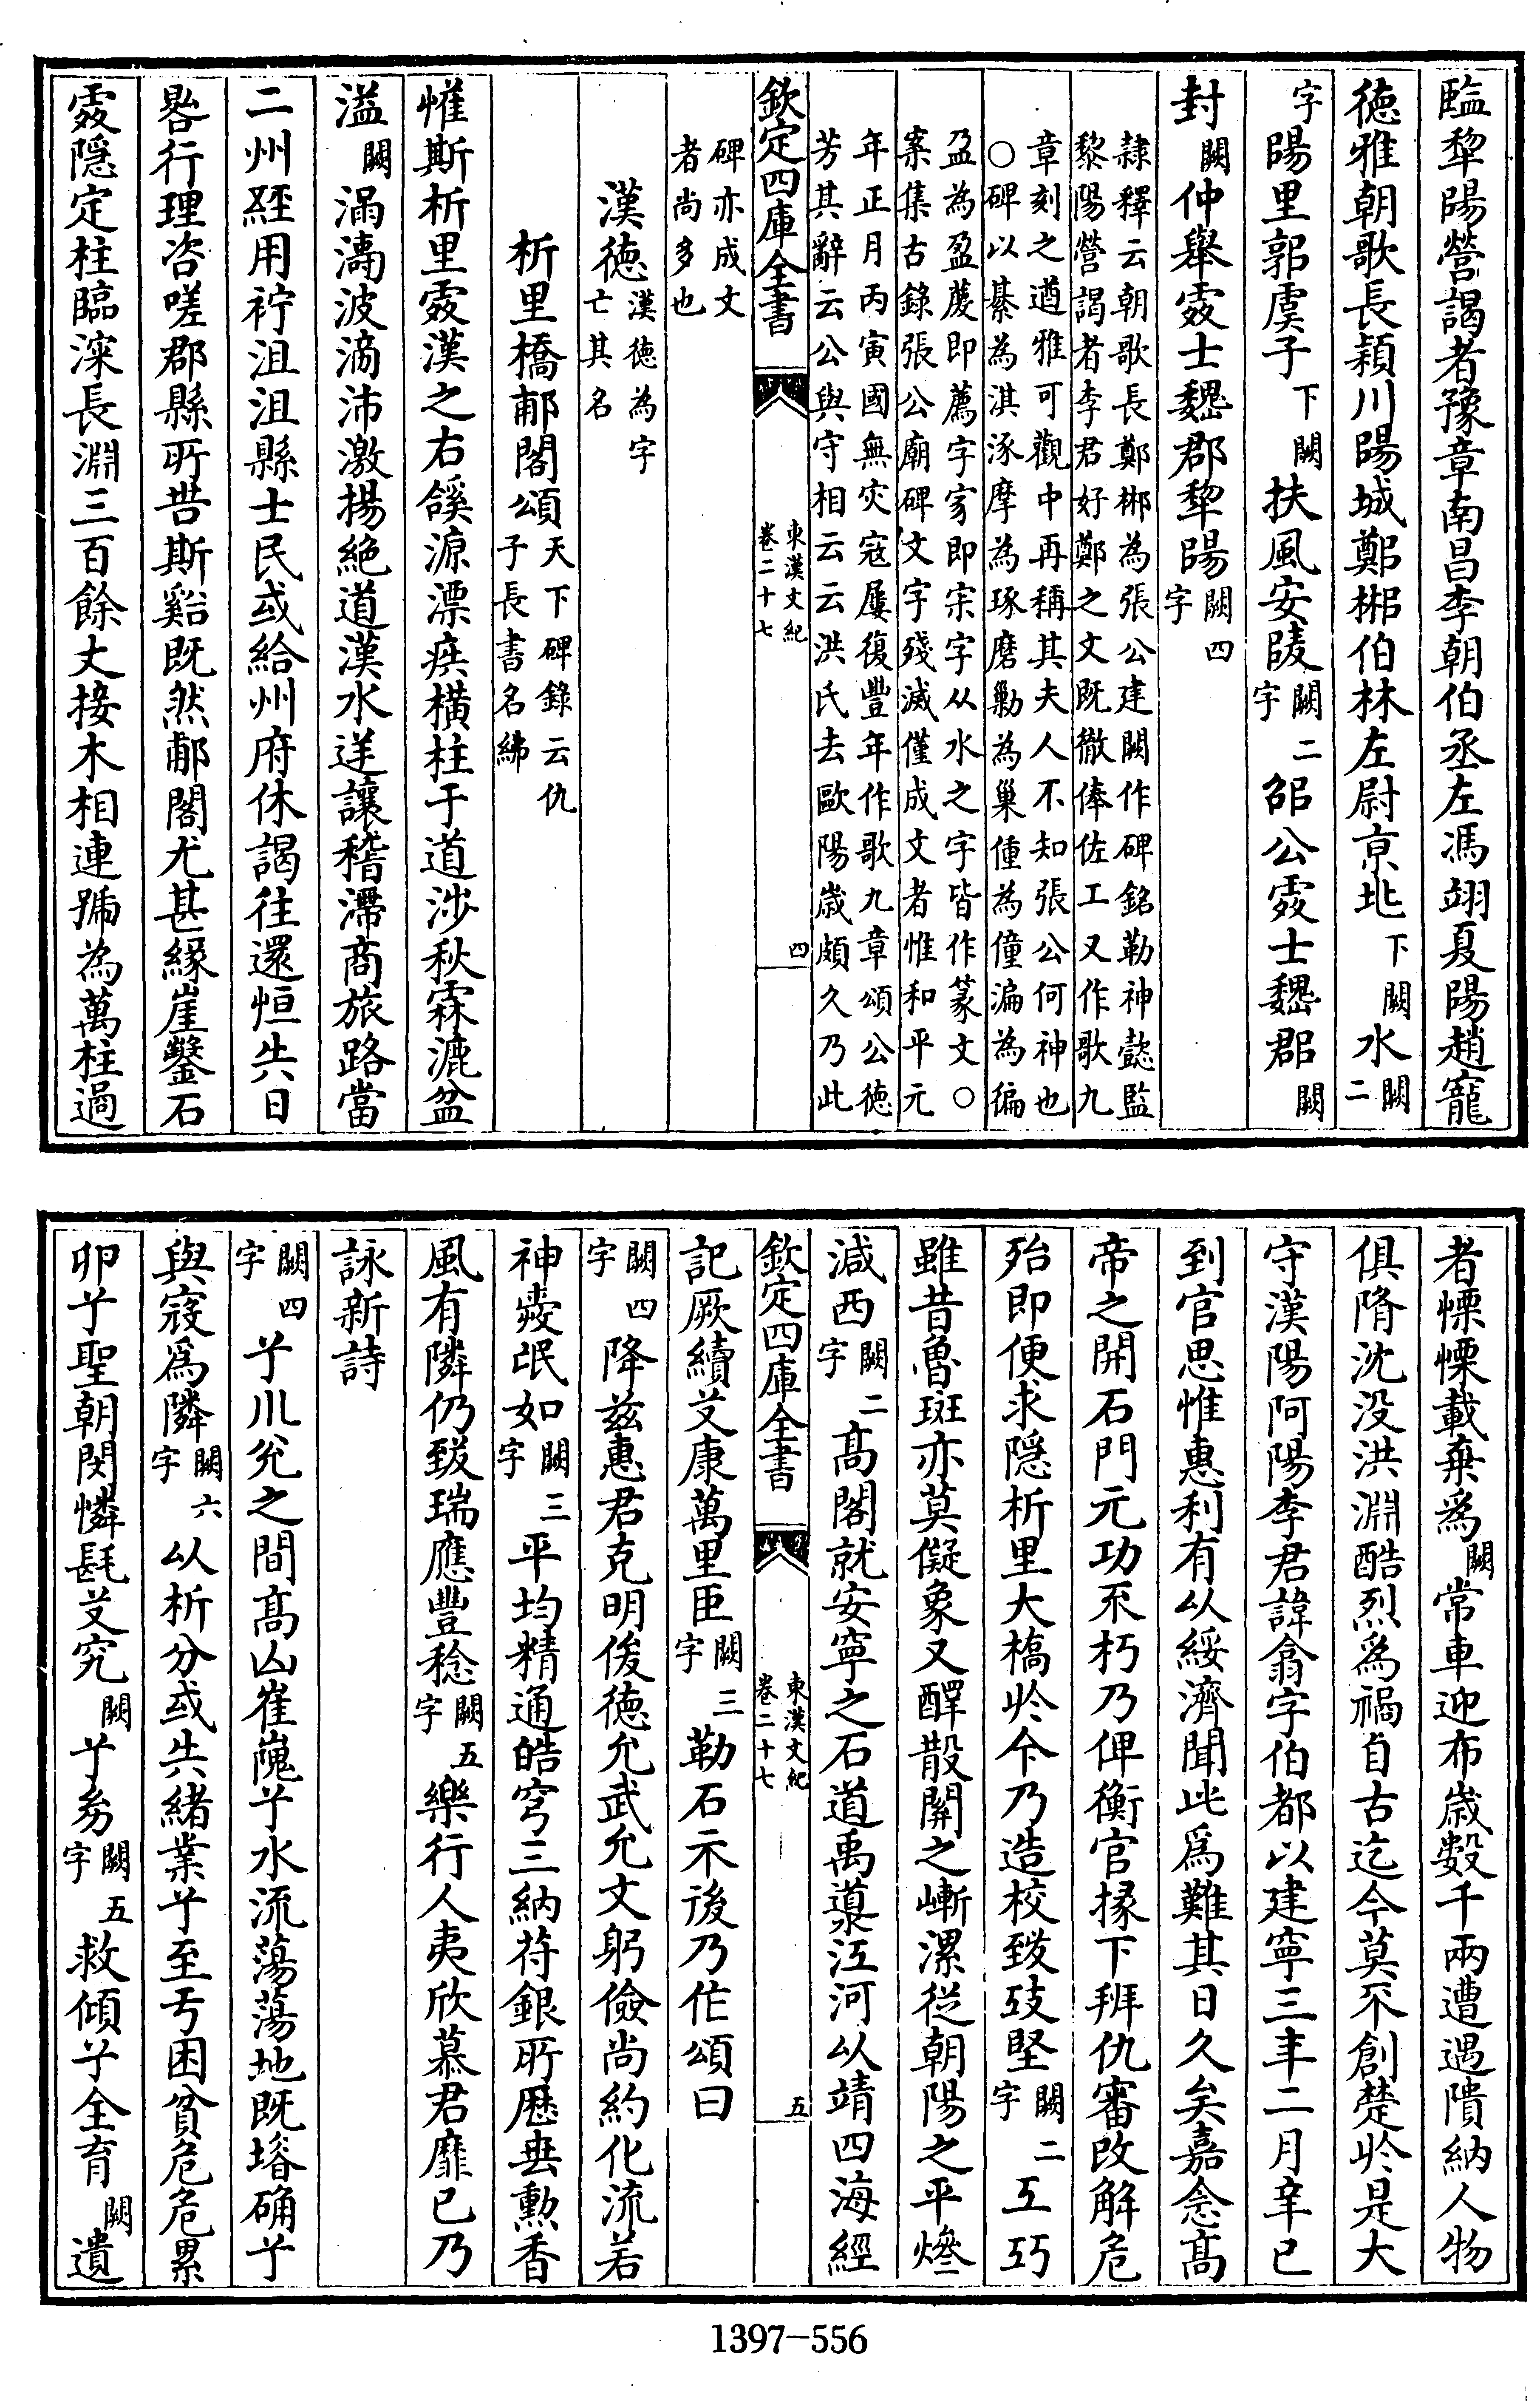 臨犂陽營謁者豫章南昌李朝伯丞左馮翊夏陽趙寵
徳雅朝歌長潁川陽城鄭郴伯林左尉京兆下闕水闕二
字陽里郭虞子下闕扶風安陵闕二字郃公䖏士魏郡闕
封闕仲舉䖏士魏郡犂陽闕四字
隷釋云朝歌長鄭郴為張公建闕作碑銘勒神懿監
黎陽營謁者李君好鄭之文既徹俸佐工又作歌九
章刻之遒雅可觀中再稱其夫人不知張公何神也
○碑以綦為淇涿摩為琢磨勦為巢僮為僮漏為徧
盈為盈蔉即薦字家即宗字从水之字皆作篆文○
案集古録張公廟碑文字殘滅僅成文者惟和平元
年正月丙寅國無灾冦屢復豐年作歌九章頌公徳
芳其辭云公與守相云云洪氏去歐陽歳頗久乃此
欽定四庫全書
東漢文紀
卷二十七
四
碑亦成文
者尚多也
漢徳漢徳為字亡其名
析里橋郙閣頌天下碑錄云仇子長書名紼
惟斯析里䖏漢之右谿源漂疾横柱于道涉秋霖漉盆
溢闕滆濤波滂沛激揚絶道漢水逆讓稽滯商旅路當
二州經用柠沮沮縣士民或給州府休謁往還恒失日
晷行理咨嗟郡縣所苦斯谿既然郙閣尤甚緣崖鑿石
䖏隱定柱臨深長淵三百餘丈接木相連號為萬柱過
者慄慄載乗爲闕常車迎布歳數千兩遭遇隤納人物
俱隋沈没洪淵酷烈爲禍自古迄今莫不創楚於是大
守漢陽阿陽李君諱翕字伯都以建寧三年二月辛巳
到官思惟惠利有以綏濟聞此爲難其日久矣嘉念髙
帝之開石門元功不朽乃俾衡官掾下辨仇審改解危
殆即便求隱析里大橋於今乃造校致攻堅闕二字工巧
雖昔魯斑亦莫儗象又醳散關之嶃漯從朝陽之平燣
減西闕二字髙閣就安寧之石道禹導江河以靖四海經
欽定四庫全書
東漢文紀
卷二十七
五
記厥續艾康萬里臣闕三字勒石示後乃作頌曰
闕四字降兹惠君克明俊徳允武允文躬儉尚約化流若
神愛氓如闕三字平均精通皓穹三納符銀所歴垂勲香
風有隣仍致瑞應豐稔闕五字樂行人夷欣慕君靡已乃
詠新詩
闕四字兮川兊之間髙山崔嵬兮水流蕩蕩地既塉确兮
與㓂爲隣闕六字以析分或失緒業兮至于困貧危危累
卯兮聖朝閔憐髦艾究闕兮幼闕五字救傾兮全育闕遺
1397-556